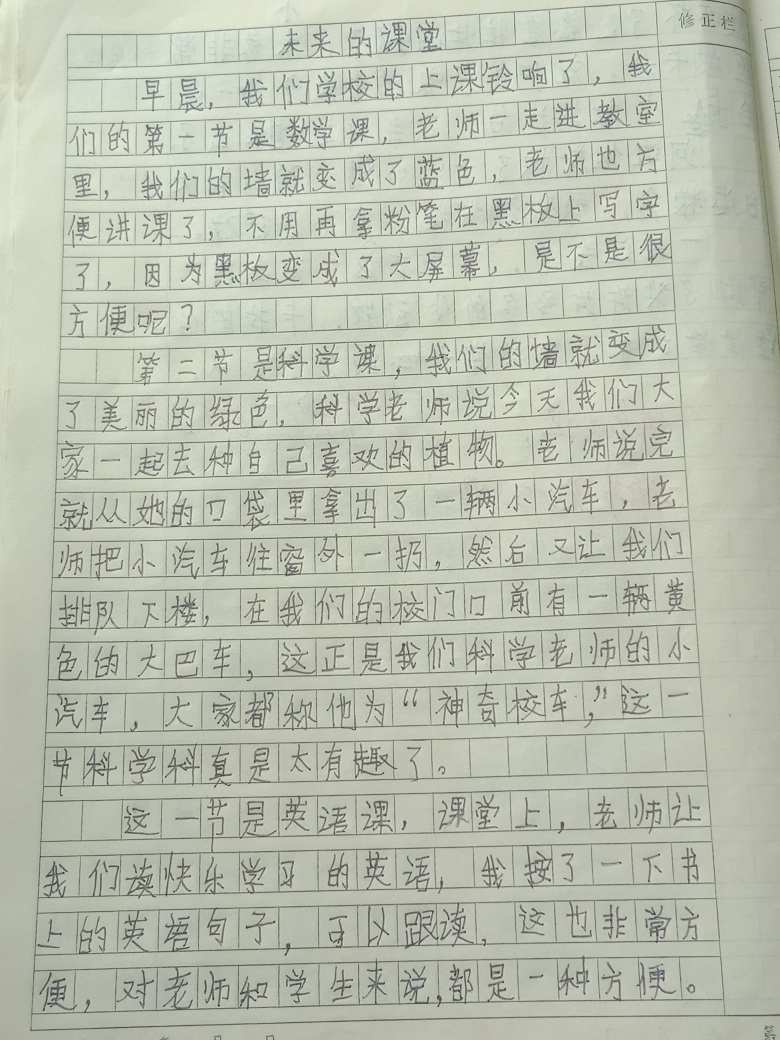 修正栏
未来的课堂
早晨，我们学校的上课铃响了，我
们的第一节是数学课，老师一走进教室
里，我们的墙就变成了蓝色，老师也方
便讲课了，不用再拿粉笔在黑板上写字
了，因为黑板变成了大屏幕，是不是很
方便呢？
第二节是科学课，我们的墙就变成
了美丽的绿色，科学老师说今天我们大
家一起去种自己喜欢的植物。老师说完
就从她的口袋里拿出了一辆小汽车，老
师把小汽车往窗外一扔，然后又让我们
排队下楼，在我们的校门口前有一辆黄
色的大巴车，这正是我们科学老师的小
汽车，大家都称他为“神奇校车，”这一
节科学科真是太有趣了。
这一节是英语课，课堂上，老师让
我们读快乐学习的英语，我按了一下书
上的英语句子，可以跟读，这也非常方
便，对老师和学生来说，都是一种方便。